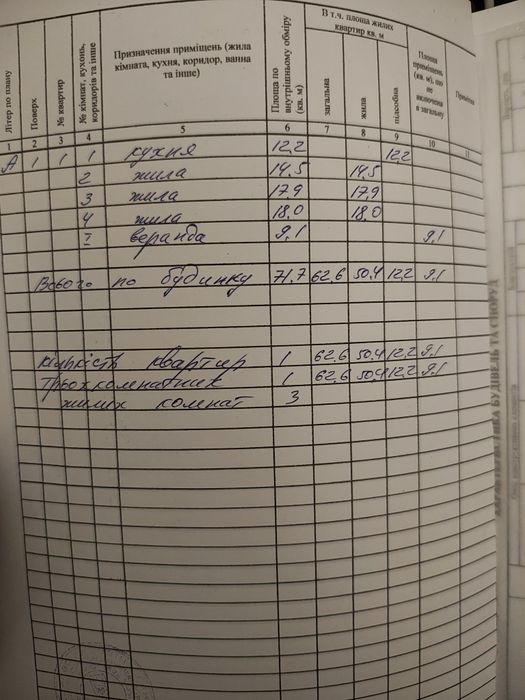 Літер по плану
Поверх
№ квартир
№ кімнат, кухонь, коридорів та інше
Призначення приміщень (жила кімната, кухня, коридор, ванна та інше)
Площа по внутрішньому обміру (кв. м)
В т.ч. площа жилих квартир кв. м
загальна
жила
підсобна
Площа приміщень (кв. м), що не включена в загальну
Примітка
1 2 3 4 5 6 7 8 9 10 11
А 1 1 1 кухня 12,2 12,2
2 жила 14,5 14,5
3 жила 17,9 17,9
4 жила 18,0 18,0
I веранда 9,1 9,1
Всього по будинку 71,7 62,6 50,4 12,2 9,1
кількість квартир 1 62,6 50,4 12,2 9,1
трьохкомнатних 1 62,6 50,4 12,2 9,1
жилих комнат 3
ХАРАКТЕРИСТИКА БУДІВЕЛЬ ТА СПОРУД